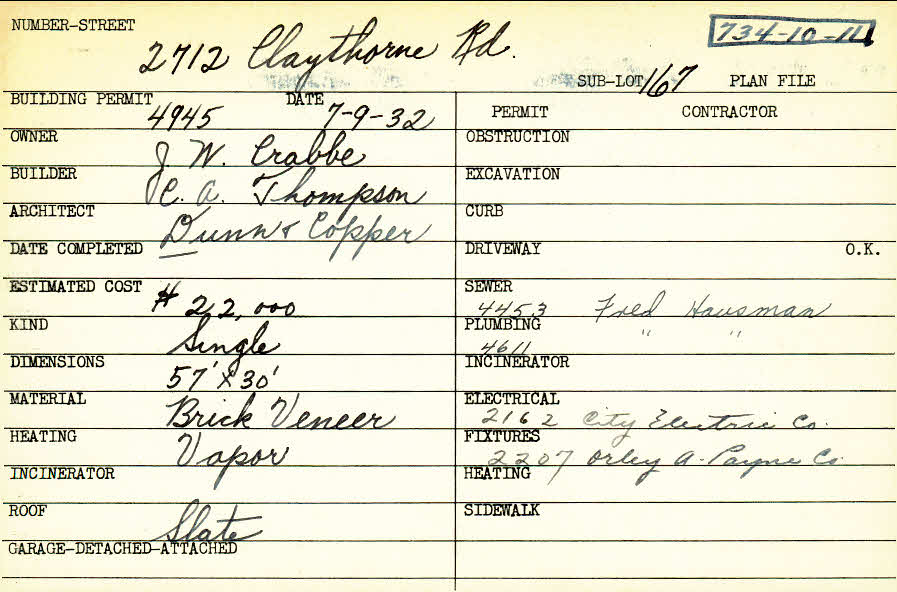 NUMBER-STREET
2712 Claythorne Rd.
734-10-11
SUB-LOT 167 PLAN FILE
BUILDING PERMIT 4945 DATE 7-9-32
OWNER J. W. Crabbe
BUILDER C. A. Thompson
ARCHITECT Dunn & Copper
DATE COMPLETED
ESTIMATED COST $ 22,000
KIND Single
DIMENSIONS 57' x 30'
MATERIAL Brick Veneer
HEATING Vapor
INCINERATOR
ROOF Slate
GARAGE-DETACHED-ATTACHED
PERMIT CONTRACTOR
OBSTRUCTION
EXCAVATION
CURB
DRIVEWAY O.K.
SEWER 4453 Fred Hausman
PLUMBING 4611 " "
INCINERATOR
ELECTRICAL 2162 City Electric Co.
FIXTURES 2207 Orley A. Payne Co.
HEATING
SIDEWALK